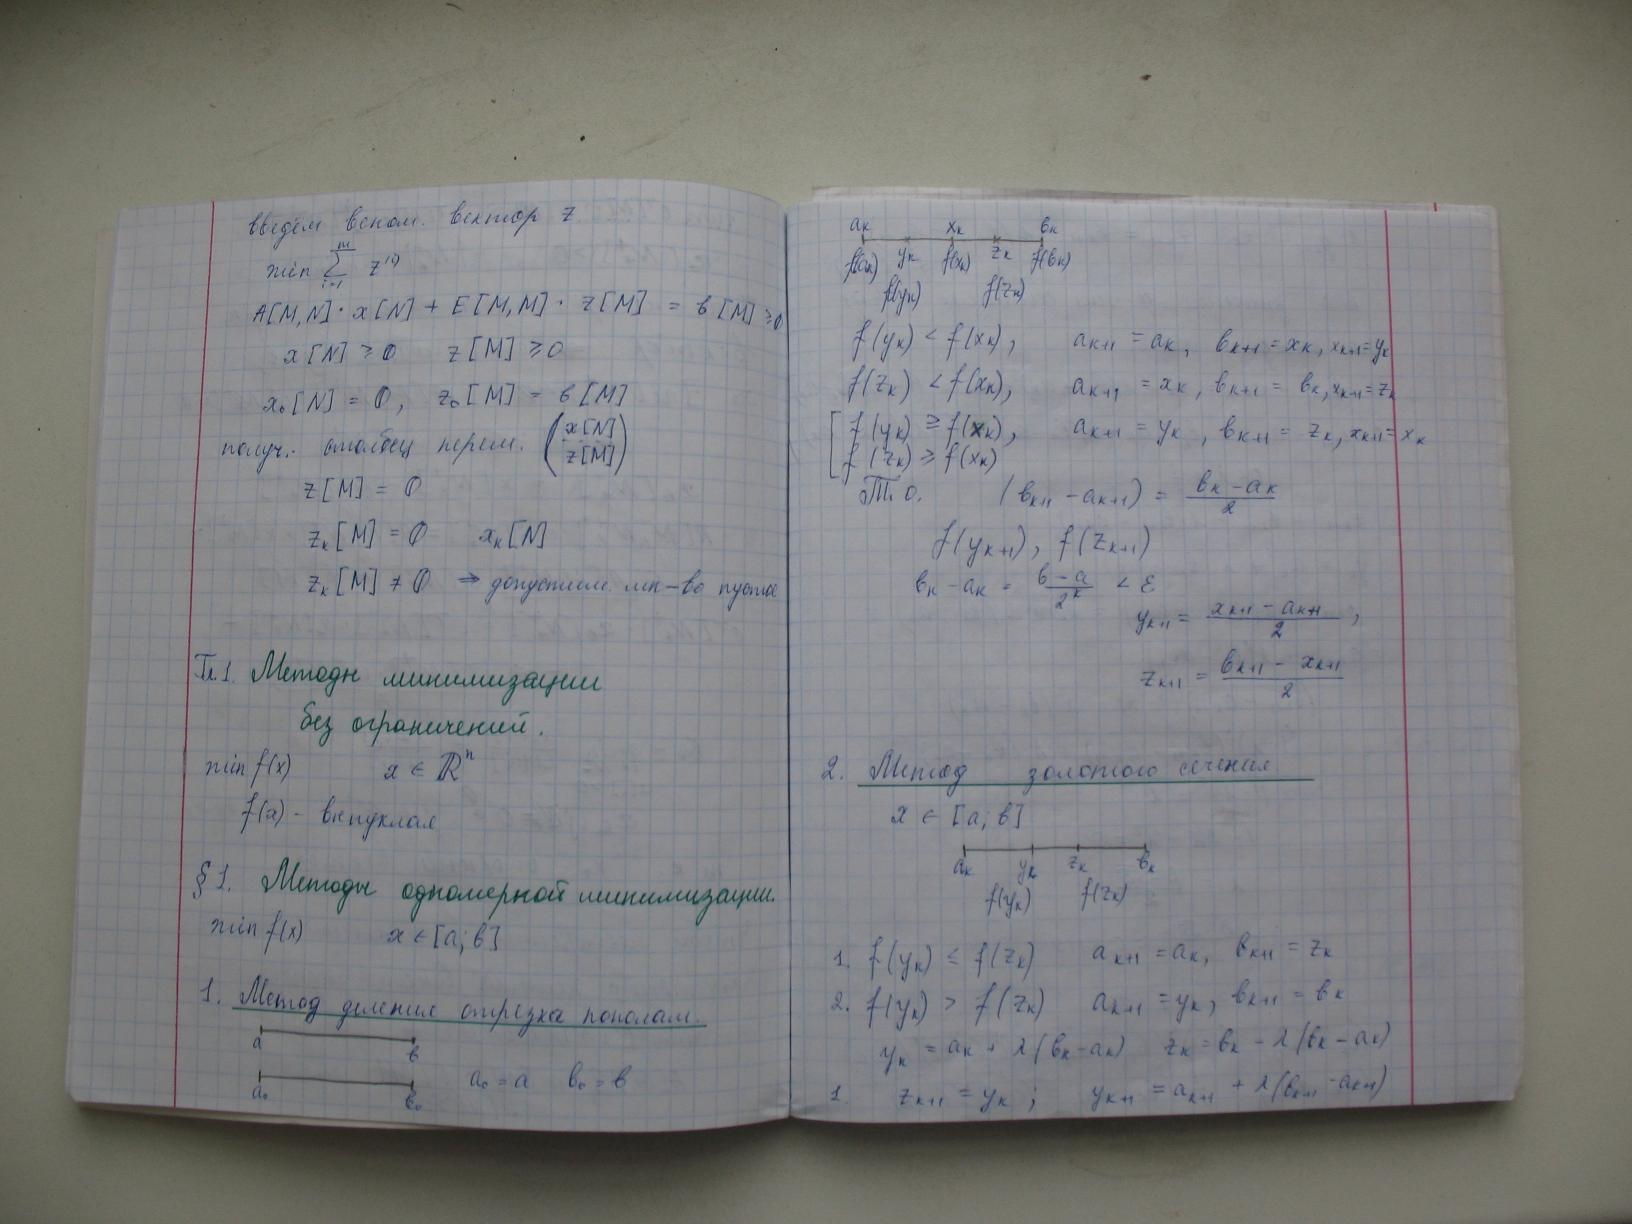 введём вспом. вектор z
min ∑_{i=1}^{m} z^{(i)}
A[M,N]·x[N] + E[M,M]·z[M] = b[M] ≥ 0
x[N] ≥ 0 z[M] ≥ 0
x₀[N] = 0, z₀[M] = b[M]
получ. столбец перем. (x[N] / z[M])
z[M] = 0
z_k[M] = 0 x_k[N]
z_k[M] ≠ 0 ⇒ допустим. мн-во пустое
Гл.1. Методы минимизации
без ограничений.
min f(x) x ∈ ℝⁿ
f(x) - выпуклая
§1. Методы одномерной минимизации.
min f(x) x ∈ [a; b]
1. Метод деления отрезка пополам.
a b
a₀ b₀ a₀ = a b₀ = b
a_k x_k b_k
f(a_k) y_k f(x_k) z_k f(b_k)
f(y_k) f(z_k)
f(y_k) < f(x_k), a_{k+1} = a_k, b_{k+1} = x_k, x_{k+1} = y_k
f(z_k) < f(x_k), a_{k+1} = x_k, b_{k+1} = b_k, x_{k+1} = z_k
f(y_k) ≥ f(x_k), a_{k+1} = y_k, b_{k+1} = z_k, x_{k+1} = x_k
f(z_k) ≥ f(x_k)
Т.о. (b_{k+1} - a_{k+1}) = (b_k - a_k)/2
f(y_{k+1}), f(z_{k+1})
b_k - a_k = (b - a)/2^k < ε
y_{k+1} = (x_{k+1} - a_{k+1})/2,
z_{k+1} = (b_{k+1} - x_{k+1})/2
2. Метод золотого сечения
x ∈ [a; b]
a_k y_k z_k b_k
f(y_k) f(z_k)
1. f(y_k) ≤ f(z_k) a_{k+1} = a_k, b_{k+1} = z_k
2. f(y_k) > f(z_k) a_{k+1} = y_k, b_{k+1} = b_k
y_k = a_k + λ(b_k - a_k) z_k = b_k - λ(b_k - a_k)
1. z_{k+1} = y_k; y_{k+1} = a_{k+1} + λ(b_{k+1} - a_{k+1})